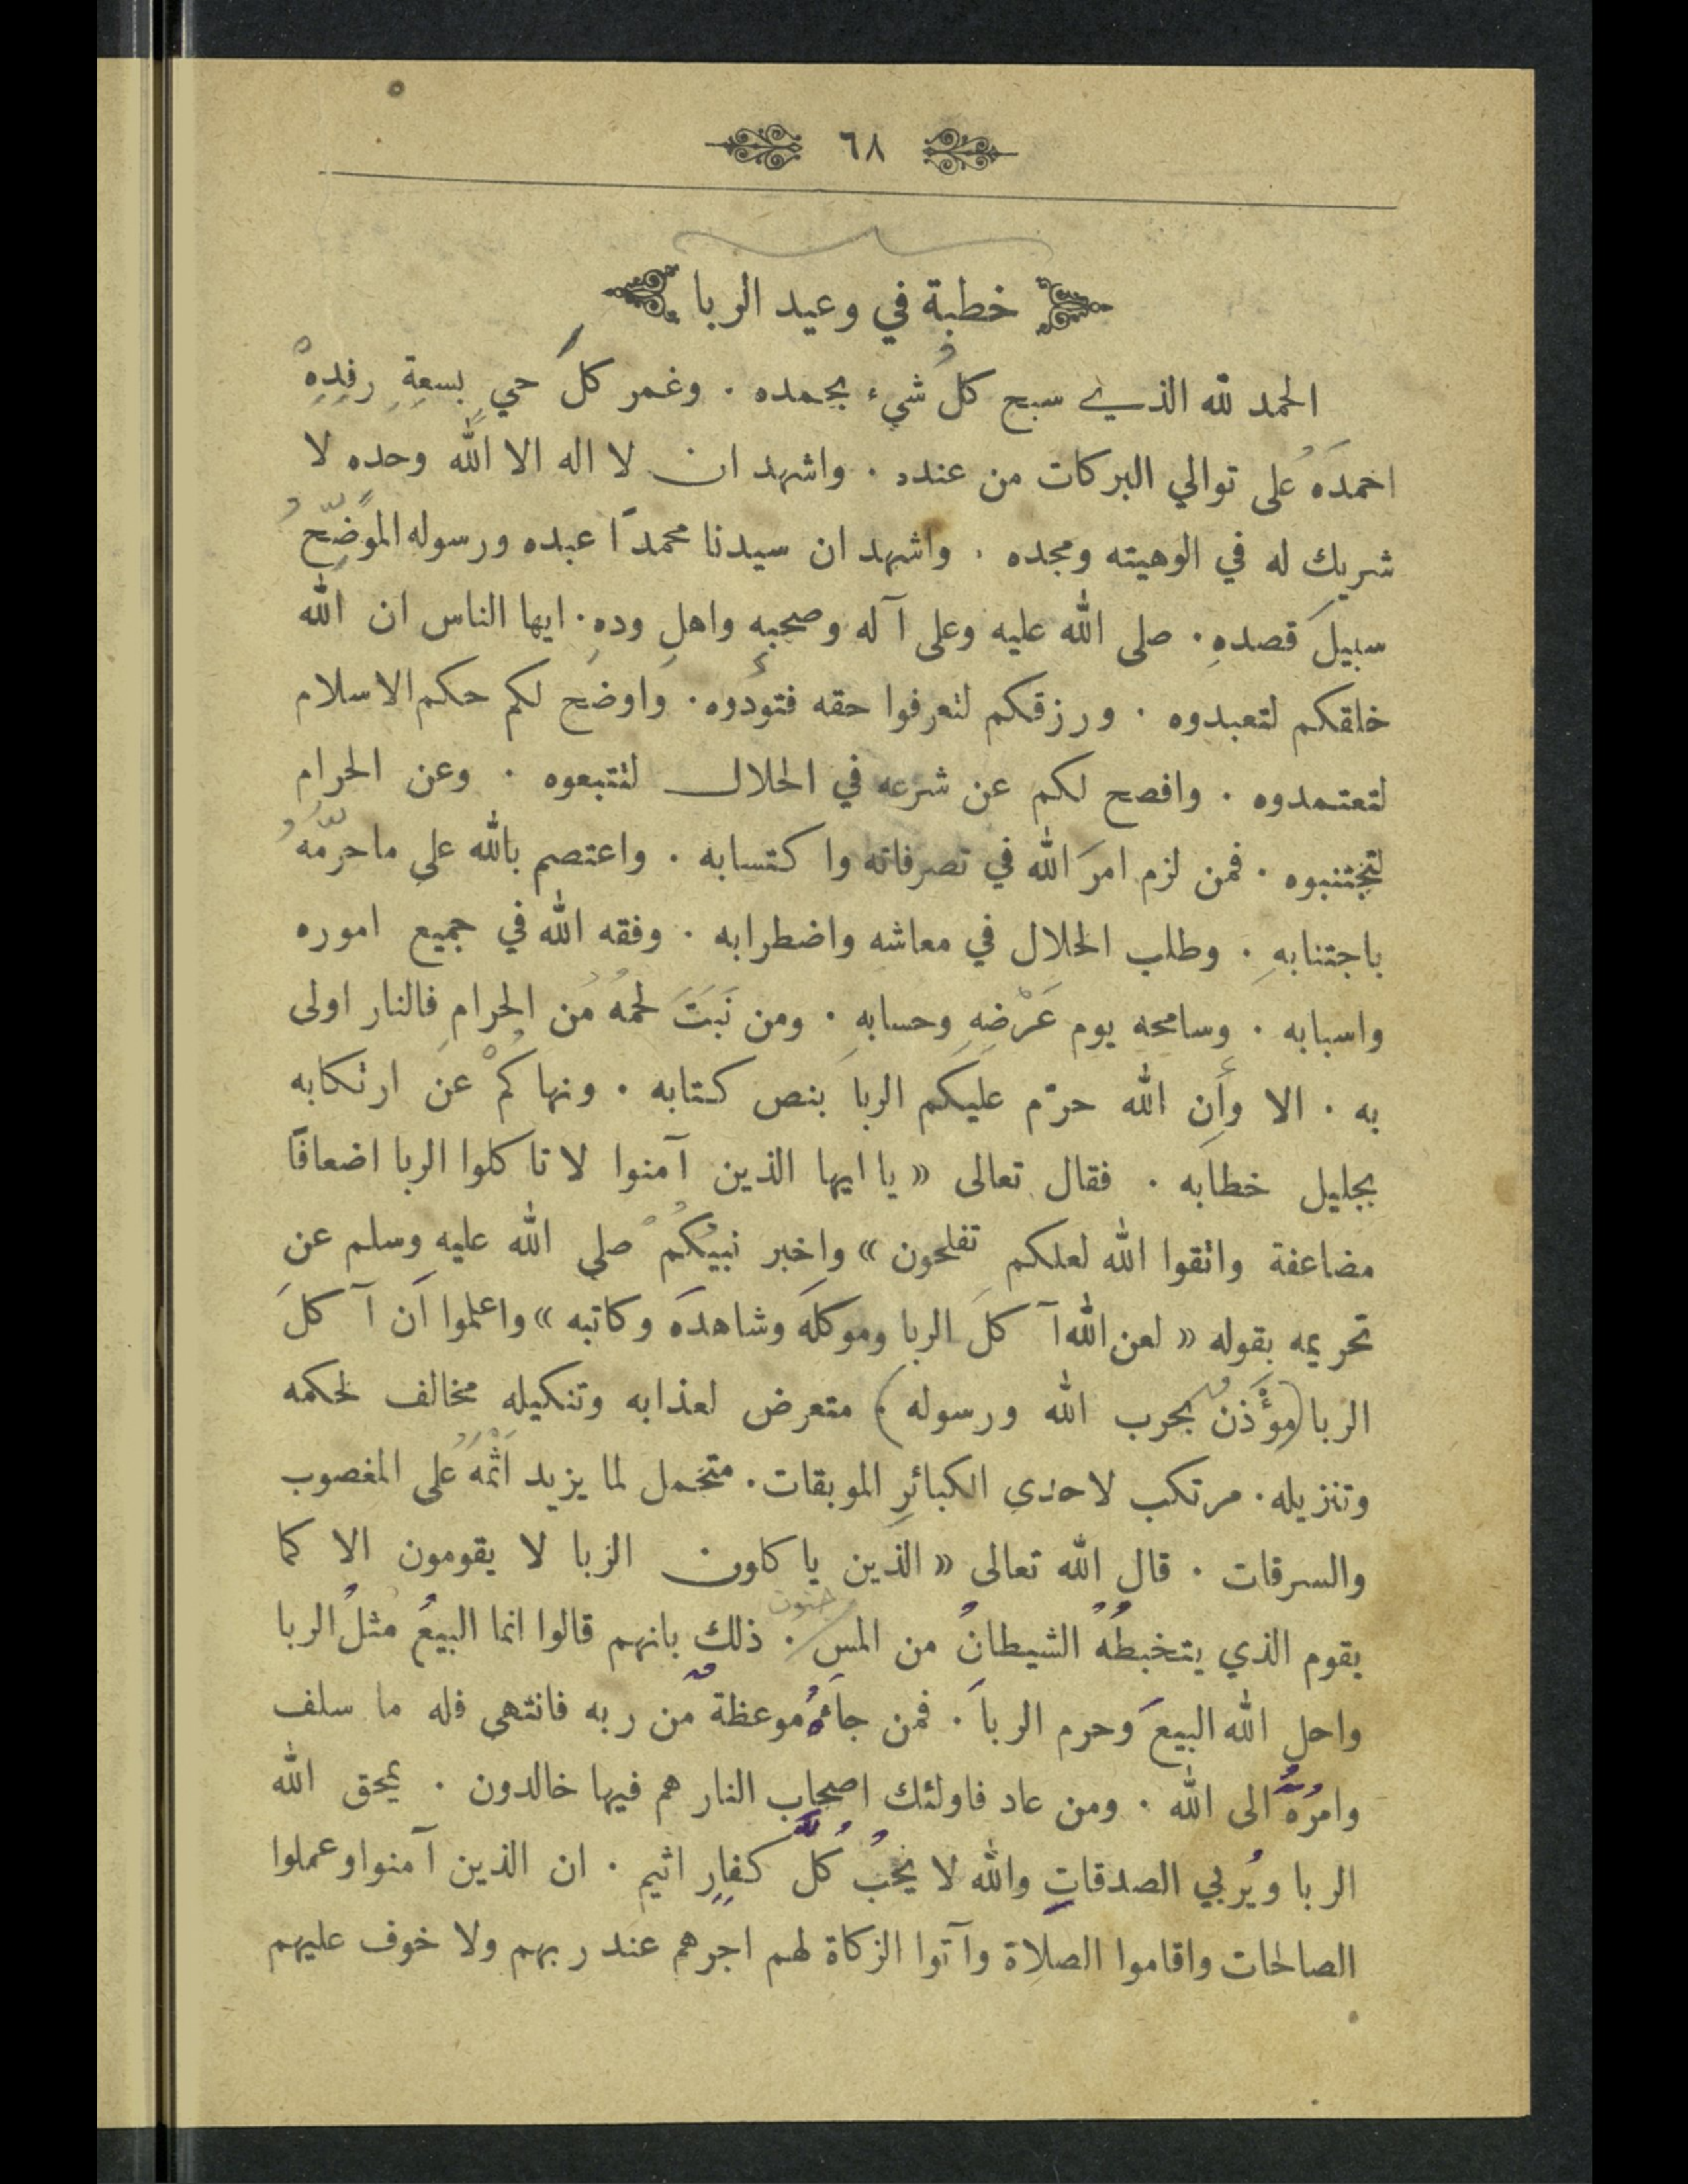 ٦٨
خطبة في وعيد الربا
الحمد لله الذي سبح كلُ شيء بحمده . وغمر كلَ حيٍ بسعةِ رفِدِهْ
احمدَهُ على توالي البركات من عنده . واشهد ان لا اله الا الله وحده لا
شريك له في الوهيته ومجده . واشهد ان سيدنا محمدًا عبده ورسوله الموضِّحُ
سبيلَ قصدهِ . صلى الله عليه وعلى آله وصحبهِ واهلِ ودهِ . ايها الناس ان الله
خلقكم لتعبدوه . ورزقكم لتعرفوا حقه فتودُّوه . واوضح لكم حكم الاسلام
لتعتمدوه . وافصح لكم عن شرعه في الحلال لتتبعوه . وعن الحرام
لتجتنبوه . فمن لزم امرَ الله في تصرفاته واكتسابه . واعتصم بالله على ما حرّمهُ
باجتنابهِ . وطلب الحلال في معاشه واضطرابه . وفقه الله في جميع اموره
واسبابه . وسامحه يوم عَرْضِهِ وحسابهِ . ومن نَبَتَ لحمُهُ من الحرامِ فالنار اولى
به . الا وأن الله حرّم عليكم الربا بنص كتابه . ونهاكُمْ عن ارتكابه
بجليل خطابه . فقال تعالى « يا ايها الذين آمنوا لا تاكلوا الربا اضعافًا
مضاعفة واتقوا الله لعلكم تفلحون » واخبر نبيُكُمْ صلى الله عليه وسلم عن
تحريمه بقوله « لعن الله آكلَ الربا وموكلَه وشاهدَه وكاتبه » واعلموا اَن آكلَ
الربا (مؤَذنٌ بحرب الله ورسوله) . متعرض لعذابه وتنكيله مخالف لحكمه
وتنزيله . مرتكب لاحدى الكبائرِ الموبقات . متحمل لما يزيد اثْمَهُ على المغصوب
والسرقات . قال الله تعالى « الذين ياكلون الربا لا يقومون الا كما
جنون
يقوم الذي يتخبطُهُ الشيطانُ من المس . ذلك بانهم قالوا انما البيعُ مثلُ الربا
واحل الله البيعَ وحرم الربا . فمن جاءهُ موعظةٌ من ربه فانتهى فله ما سلف
وامرُهُ الى الله . ومن عاد فاولئك اصحاب النار هم فيها خالدون . يمحق الله
الربا ويُربي الصدقاتِ والله لا يحبُ كُلَّ كفارٍ اثيم . ان الذين آمنوا وعملوا
الصالحات واقاموا الصلاة وآتوا الزكاة لهم اجرهم عند ربهم ولا خوف عليهم